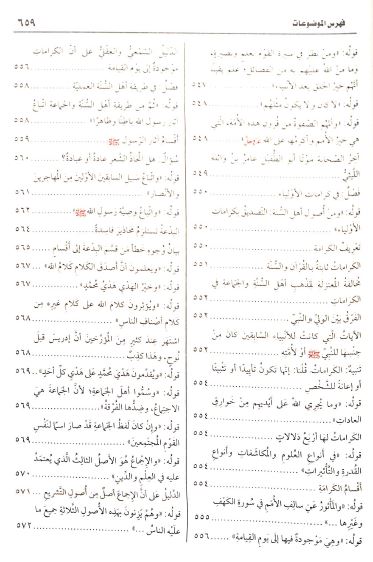 فهرس الموضوعات
٦٥٩
قوله: «ومن نظر في سيرة القوم بعلم وبصيرة،
وما منَّ الله عليهم به من الفضائل علم يقينًا
أنهم خير الخلق بعد الأنبياء» ٥٤٨
قوله: «لا كان ولا يكون مثلهم» ٥٤٨
قوله: «وأنهم الصفوة من قرون هذه الأمة، التي
هي خير الأمم وأكرمها على الله عز وجل» ٥٤٨
آخر الصحابة موتًا أبو الطفيل عامر بن واثلة
الليثي ٥٤٩
فصل في كرامات الأولياء
قوله: «ومن أصول أهل السنة: التصديق بكرامات
الأولياء» ٥٥٠
تعريف الكرامة ٥٥٠
الكرامات ثابتة بالقرآن والسنة ٥٥١
مخالفة المعتزلة لمذهب أهل السنة والجماعة في
الكرامات
الفرق بين الولي والنبي
الآيات التي كانت للأنبياء السابقين كان من
جنسها للنبي ﷺ أو لأمته ٥٥٢
تنبيه: الكرامات، قلنا: إنها تكون تأييدًا أو تثبيتًا
أو إعانة للشخص ٥٥٤
قوله: «وما يجري الله على أيديهم من خوارق
العادات» ٥٥٤
الكرامات لها أربع دلالات
قوله: «في أنواع العلوم والمكاشفات وأنواع
القدرة والتأثيرات» ٥٥٤
أقسام الكرامة ٥٥٤
قوله: «والمأثور عن سالف الأمم في سورة الكهف
وغيرها ...» ٥٥٥
قوله: «وهي موجودة فيها إلى يوم القيامة» ٥٥٦
الدليل السمعي والعقلي على أن الكرامات
موجودة إلى يوم القيامة ٥٥٦
فصل في طريقة أهل السنة العملية ٥٥٨
قوله: «ثم من طريقة أهل السنة والجماعة اتباع
آثار رسول الله باطنًا وظاهرًا» ٥٥٨
أقسام آثار الرسول ﷺ
سؤال: هل اتخاذ الشعر عادة أو عبادة؟ ٥٦٠
قوله: «واتباع سبيل السابقين الأولين من المهاجرين
والأنصار» ٥٦١
قوله: «واتباع وصية رسول الله ﷺ» ٥٦٢
البدعة تستلزم محاذير فاسدة ٥٦٤
بيان وجوه خطأ من قسم البدعة إلى أقسام ٥٦٥
قوله: «ويعلمون أن أصدق الكلام كلام الله»
قوله: «وخير الهدي هدي محمد»
قوله: «ويؤثرون كلام الله على كلام غيره من
كلام أصناف الناس»
اشتهر عند كثير من المؤرخين أن إدريس قبل
نوح، وهذا كذب
قوله: «ويقدمون هدي محمد على هدي كل أحد»
قوله: «وسموا أهل الجماعة؛ لأن الجماعة هي
الاجتماع، وضدها الفرقة» ٥٦٩
قوله: «وإن كان لفظ الجماعة قد صار اسمًا لنفس
القوم المجتمعين» ٥٦٩
قوله: «والإجماع هو الأصل الثالث الذي يعتمد
عليه في العلم والدين» ٥٧٠
الدليل على أن الإجماع أصل من أصول التشريع ٥٧١
قوله: «وهم يزنون بهذه الأصول الثلاثة جميع ما
عليه الناس ...» ٥٧٢